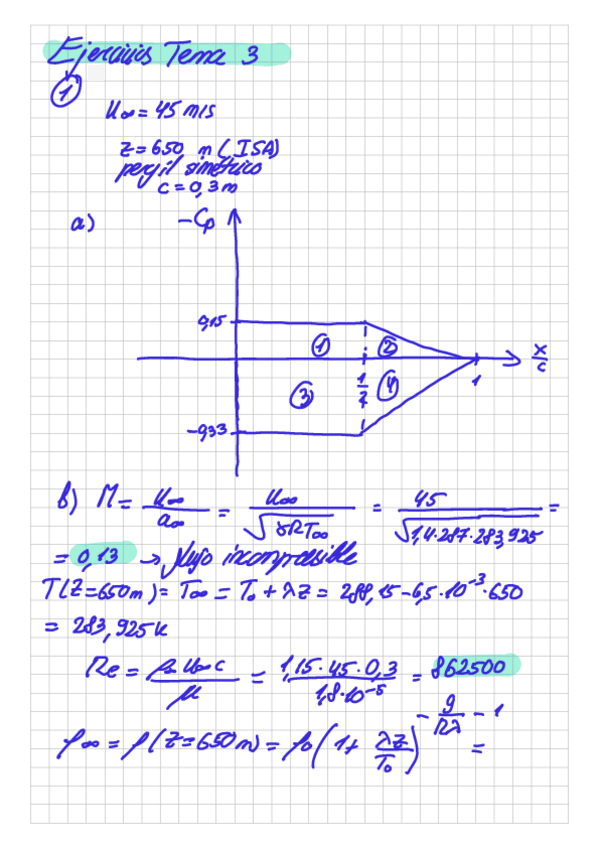 Ejercicios Tema 3
①
U∞ = 45 m/s
z = 650 m (ISA)
perfil simétrico
c = 0,3 m
a)
-Cp
0,15
① ②
x/c
③ 1/2 ④ 1
-0,33
b) M = U∞/a∞ = U∞/√(γRT∞) = 45/√(1,4·287·283,925) =
= 0,13 → flujo incompresible
T(z=650m) = T∞ = T₀ + λz = 288,15 - 6,5·10⁻³·650
= 283,925 K
Re = ρ∞ U∞ c/μ = 1,15·45·0,3/1,8·10⁻⁵ = 862500
ρ∞ = ρ(z=650m) = ρ₀(1 + λz/T₀)^(-g/Rλ - 1) =